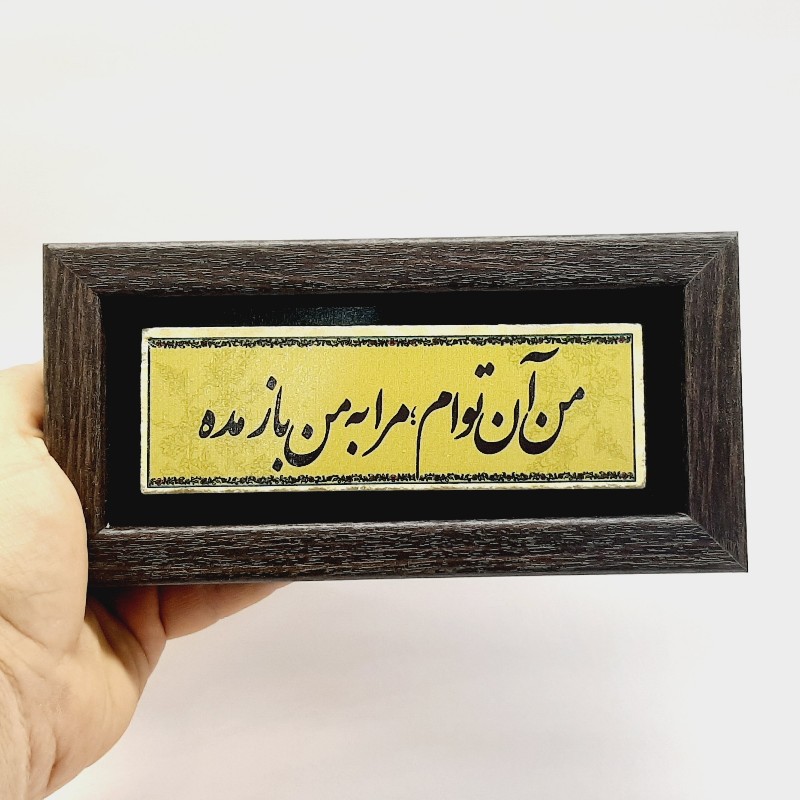 من آن توام؛ مرا به من باز مده